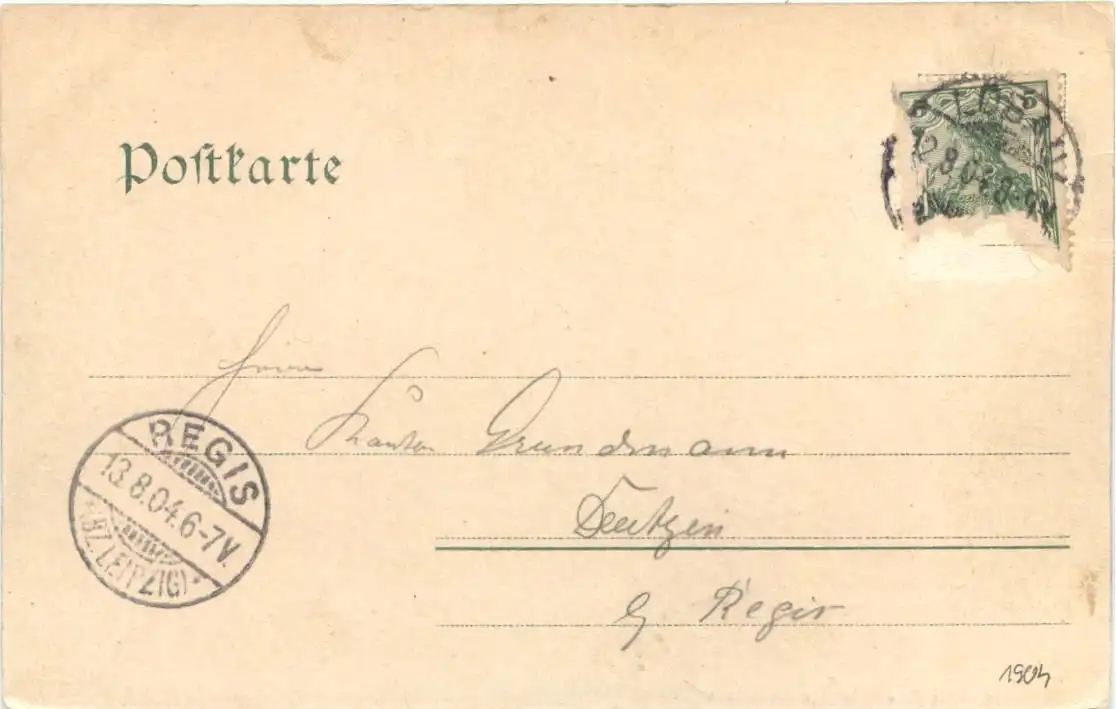 Postkarte
5 5
8.04.8-9V
Herrn
Kantor Grundmann
Deutzen
b/ Regis
REGIS
13.8.04.6-7V.
(BZ. LEIPZIG)
1904